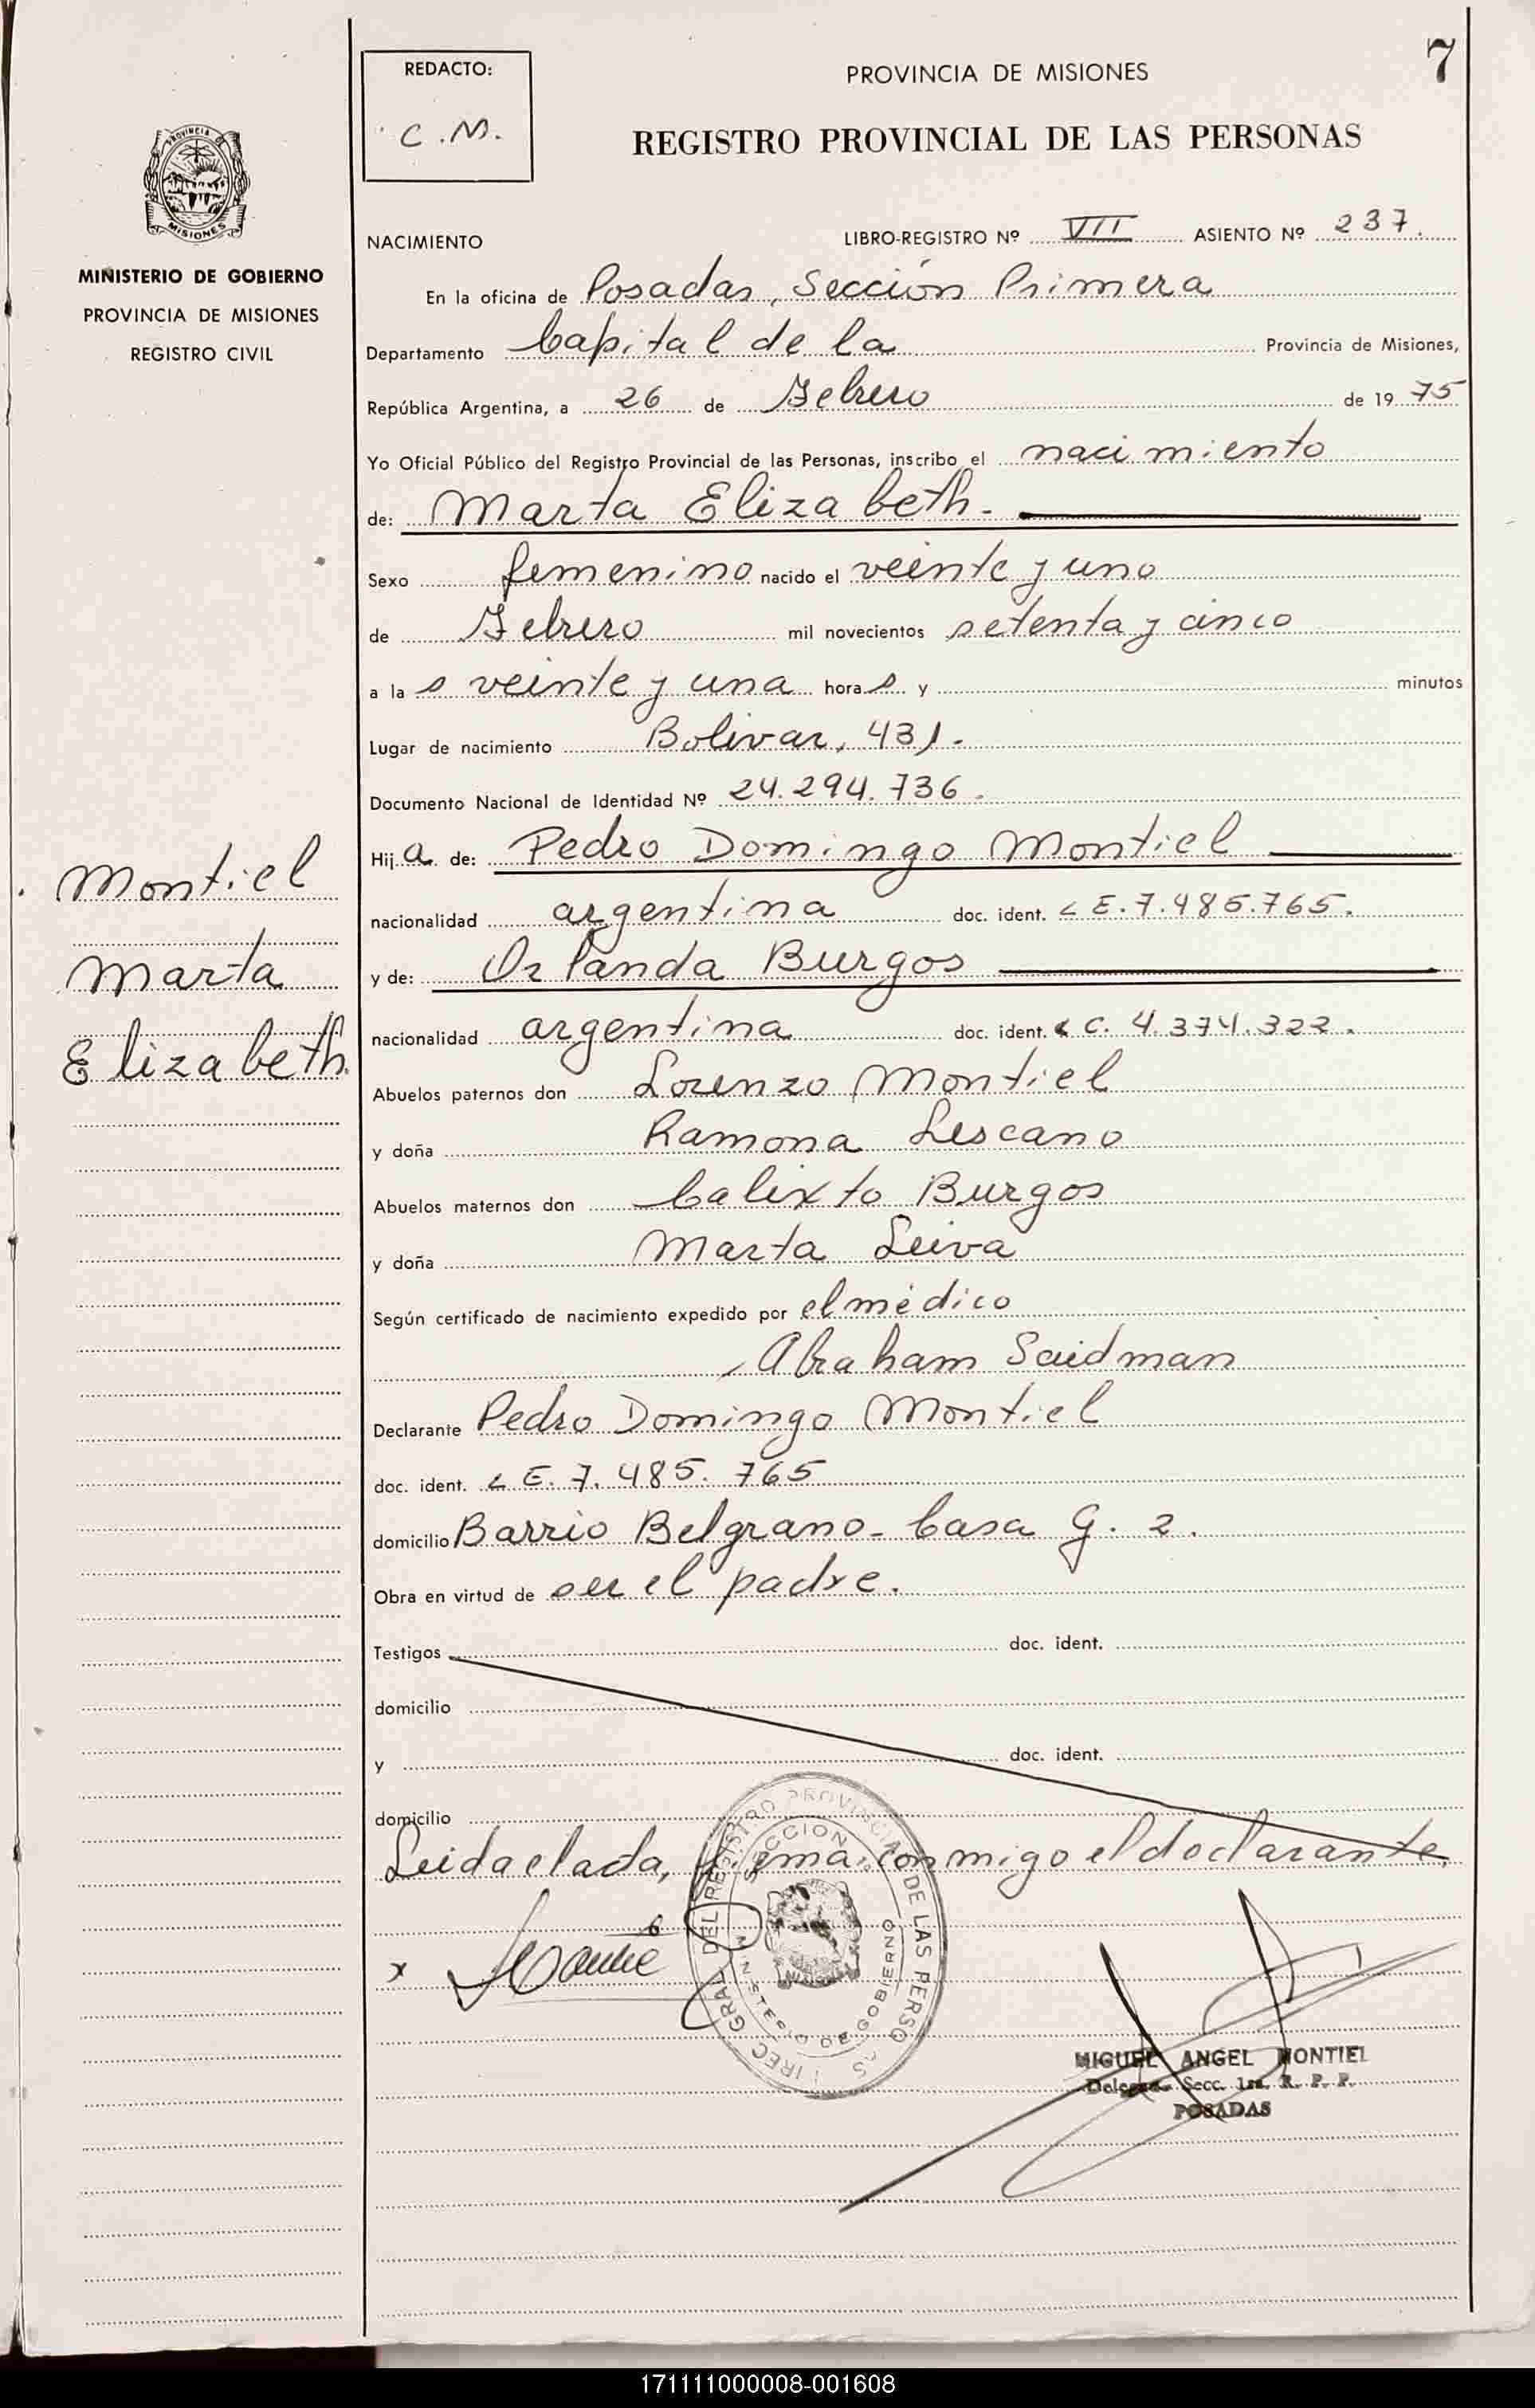 7
REDACTO:
C.M.
PROVINCIA DE MISIONES
REGISTRO PROVINCIAL DE LAS PERSONAS
PROVINCIA
MISIONES
MINISTERIO DE GOBIERNO
PROVINCIA DE MISIONES
REGISTRO CIVIL
Montiel
Marta
Elizabeth.
NACIMIENTO LIBRO-REGISTRO Nº VII ASIENTO Nº 237.
En la oficina de Posadas, Sección Primera
Departamento Capital de la Provincia de Misiones,
República Argentina, a 26 de Febrero de 1975
Yo Oficial Público del Registro Provincial de las Personas, inscribo el nacimiento
de: Marta Elizabeth.
Sexo femenino nacido el veinte y uno
de Febrero mil novecientos setenta y cinco
a las veinte y una horas y minutos
Lugar de nacimiento Bolivar, 431.
Documento Nacional de Identidad Nº 24.294.736.
Hija de: Pedro Domingo Montiel
nacionalidad argentina doc. ident. L E. 7.485.765.
y de: Orlanda Burgos
nacionalidad argentina doc. ident. L C. 4.374.322.
Abuelos paternos don Lorenzo Montiel
y doña Ramona Lescano
Abuelos maternos don Calixto Burgos
y doña Marta Leiva
Según certificado de nacimiento expedido por el médico
Abraham Saidman
Declarante Pedro Domingo Montiel
doc. ident. L E. 7.485.765
domicilio Barrio Belgrano - Casa G. 2.
Obra en virtud de ser el padre.
Testigos doc. ident.
domicilio
y doc. ident.
domicilio
Leida el acta, firma conmigo el declarante.
x
DEL REGISTRO PROVINCIAL DE LAS PERSO
SECCION
MINISTERIO DE GOBIERNO
MIGUEL ANGEL MONTIEL
Delegado Secc. 1ra. R. P. P.
POSADAS
171111000008-001608